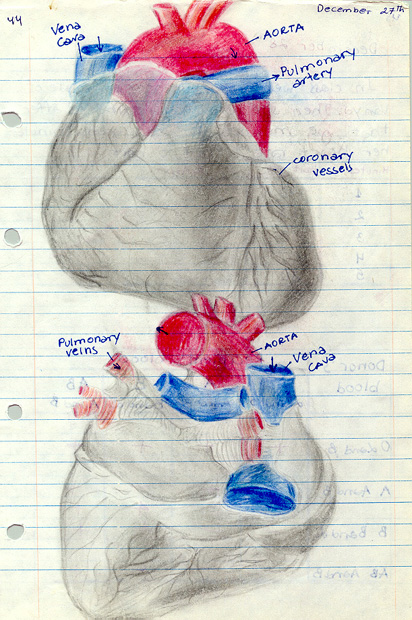 44
December 27Th
Vena
cava
AORTA
Pulmonary
artery
coronary
vessels
Pulmonary
veins
AORTA
Vena
cava